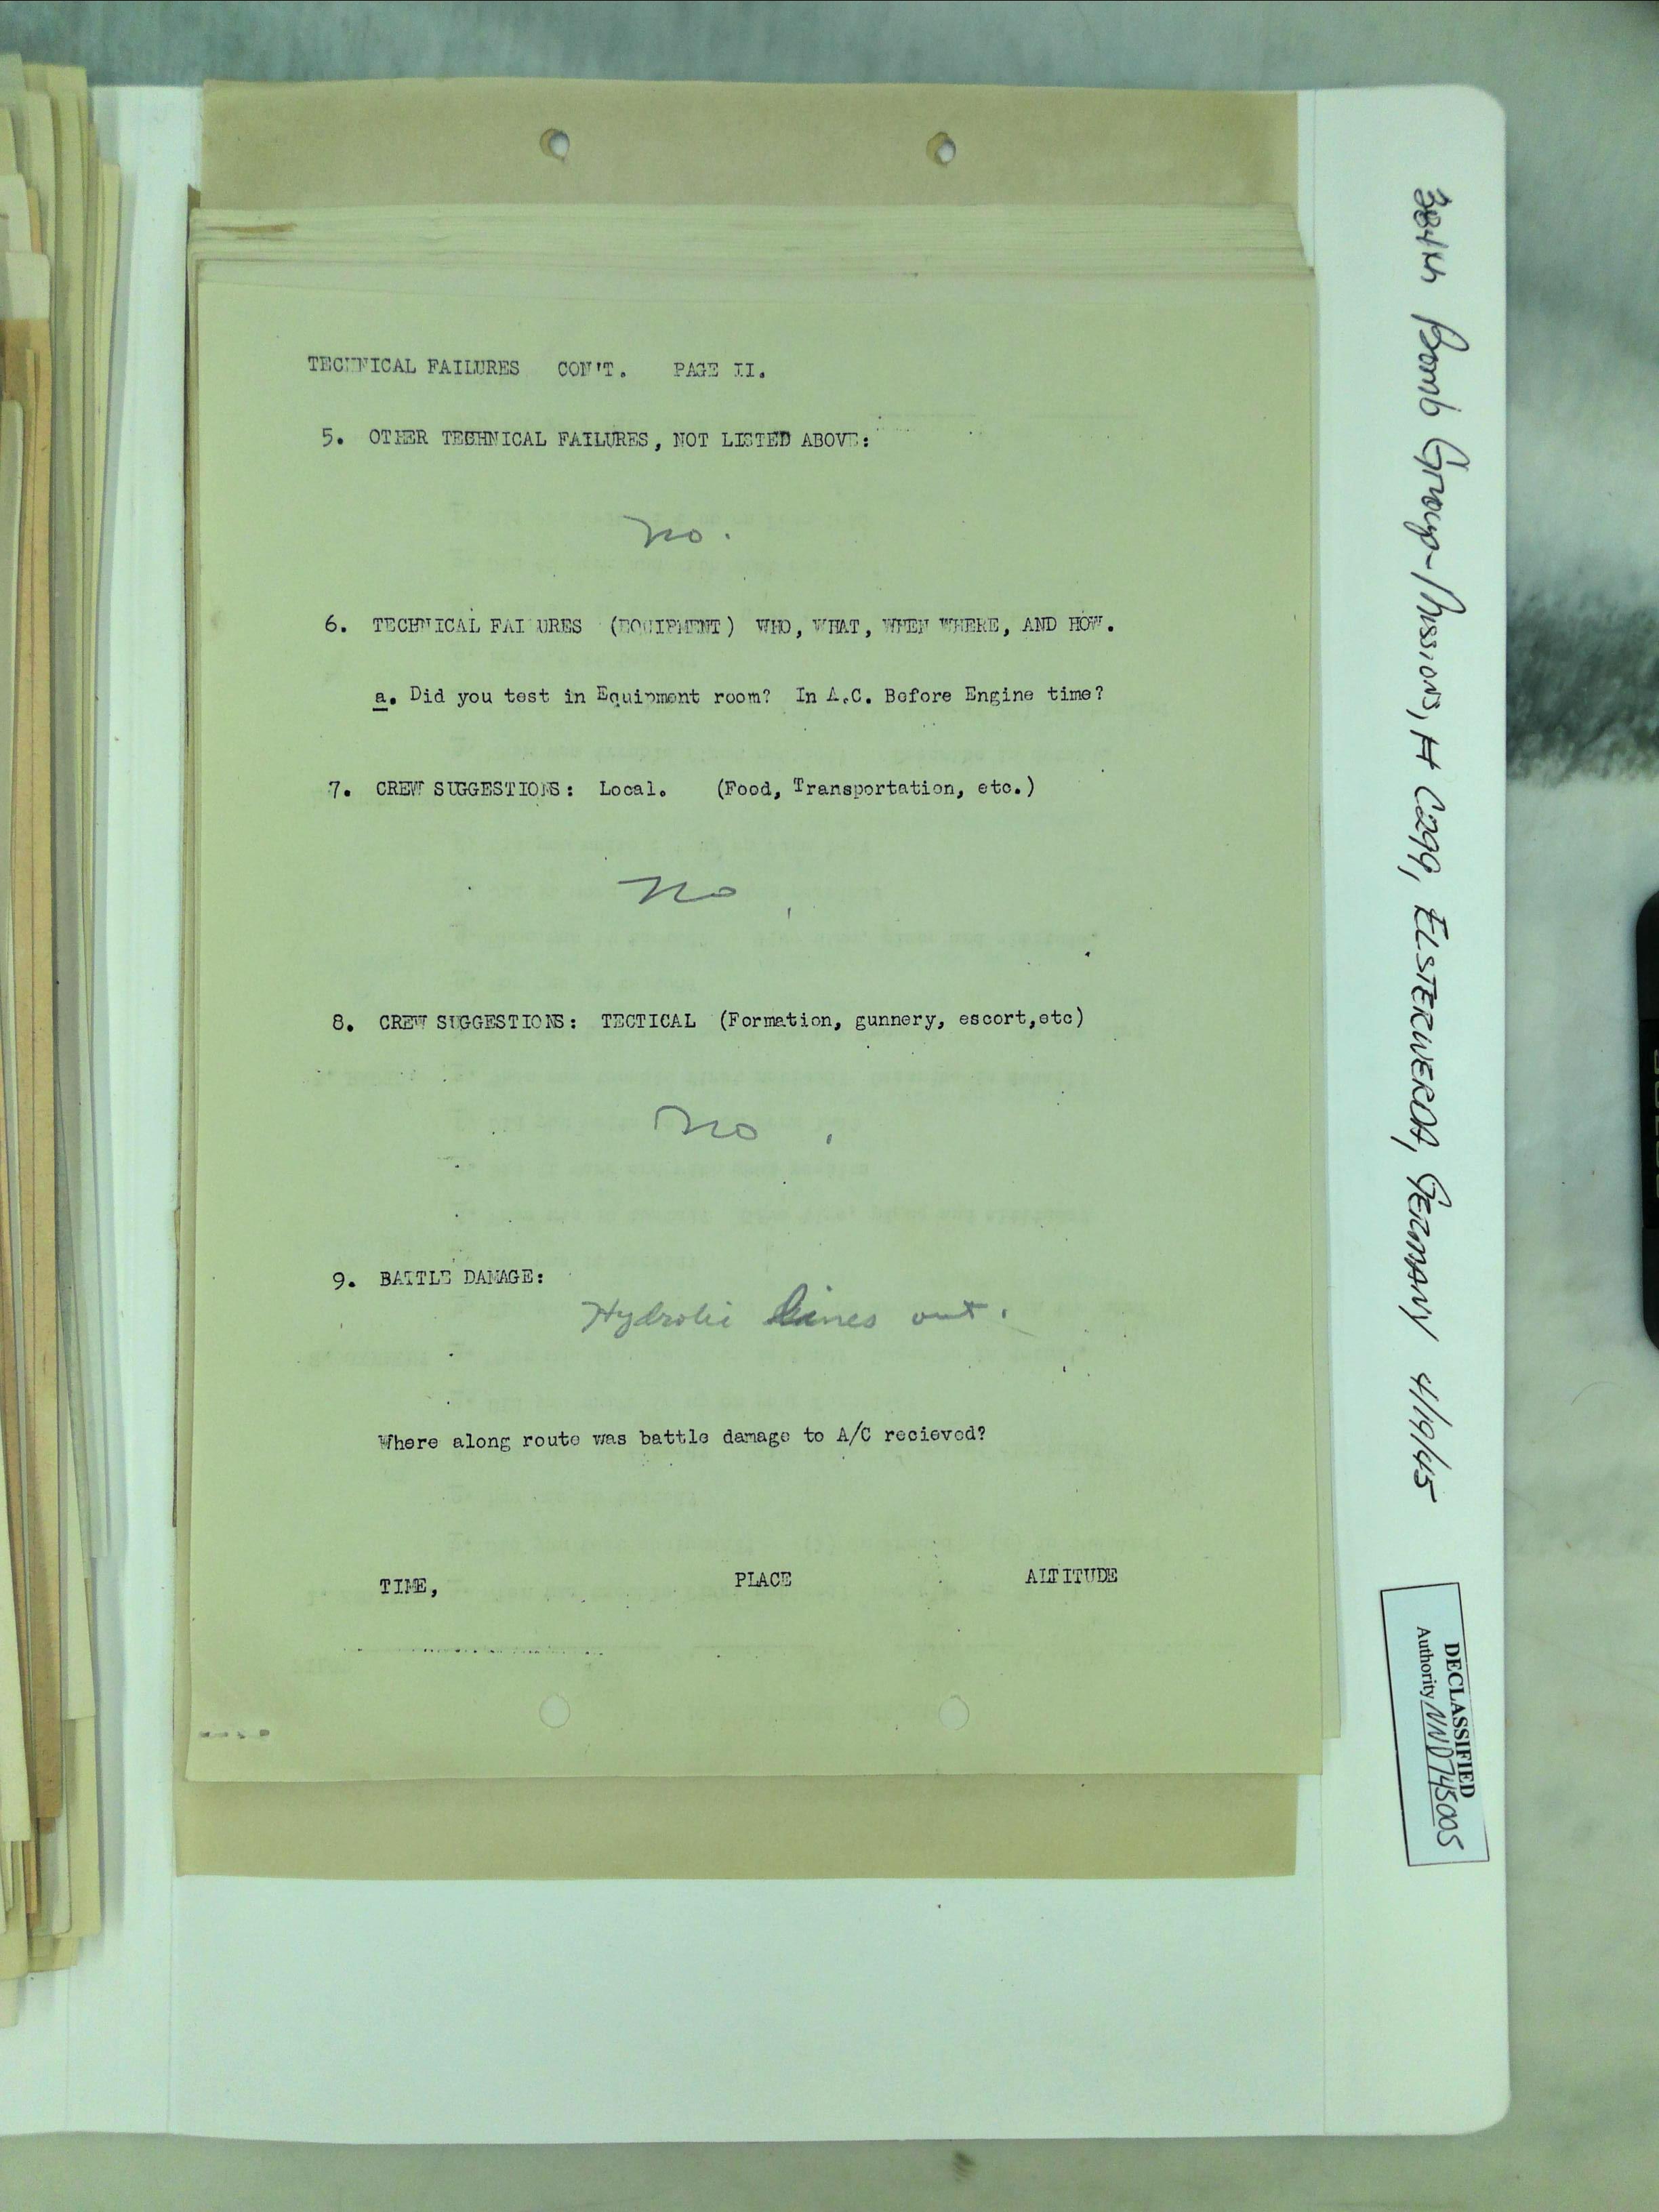 TECHNICAL FAILURES CON'T. PAGE II.
5. OTHER TECHNICAL FAILURES, NOT LISTED ABOVE:
No.
6. TECHNICAL FAI URES (EQUIPMENT) WHO, WHAT, WHEN WHERE, AND HOW.
a. Did you test in Equipment room? In A.C. Before Engine time?
7. CREW SUGGESTIONS: Local. (Food, Transportation, etc.)
No
8. CREW SUGGESTIONS: TECTICAL (Formation, gunnery, escort,etc)
No
9. BATTLE DAMAGE:
Hydrolic lines out.
Where along route was battle damage to A/C recieved?
TIME, PLACE ALTITUDE
384th Bomb Group-Missions, # C299, ELSTERWERDA, GERMANY 4/19/45
DECLASSIFIED
Authority NND745005